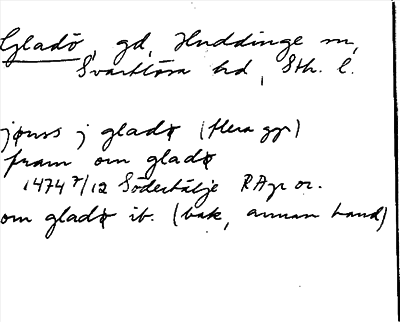 Gladö, gd, Huddinge sn,
Svartlösa hd, Sth. l.
jönss j gladø (flera ggr)
fram om gladø
1474 7/12 Södertälje RAp or.
om gladø ib. (bak, annan hand)